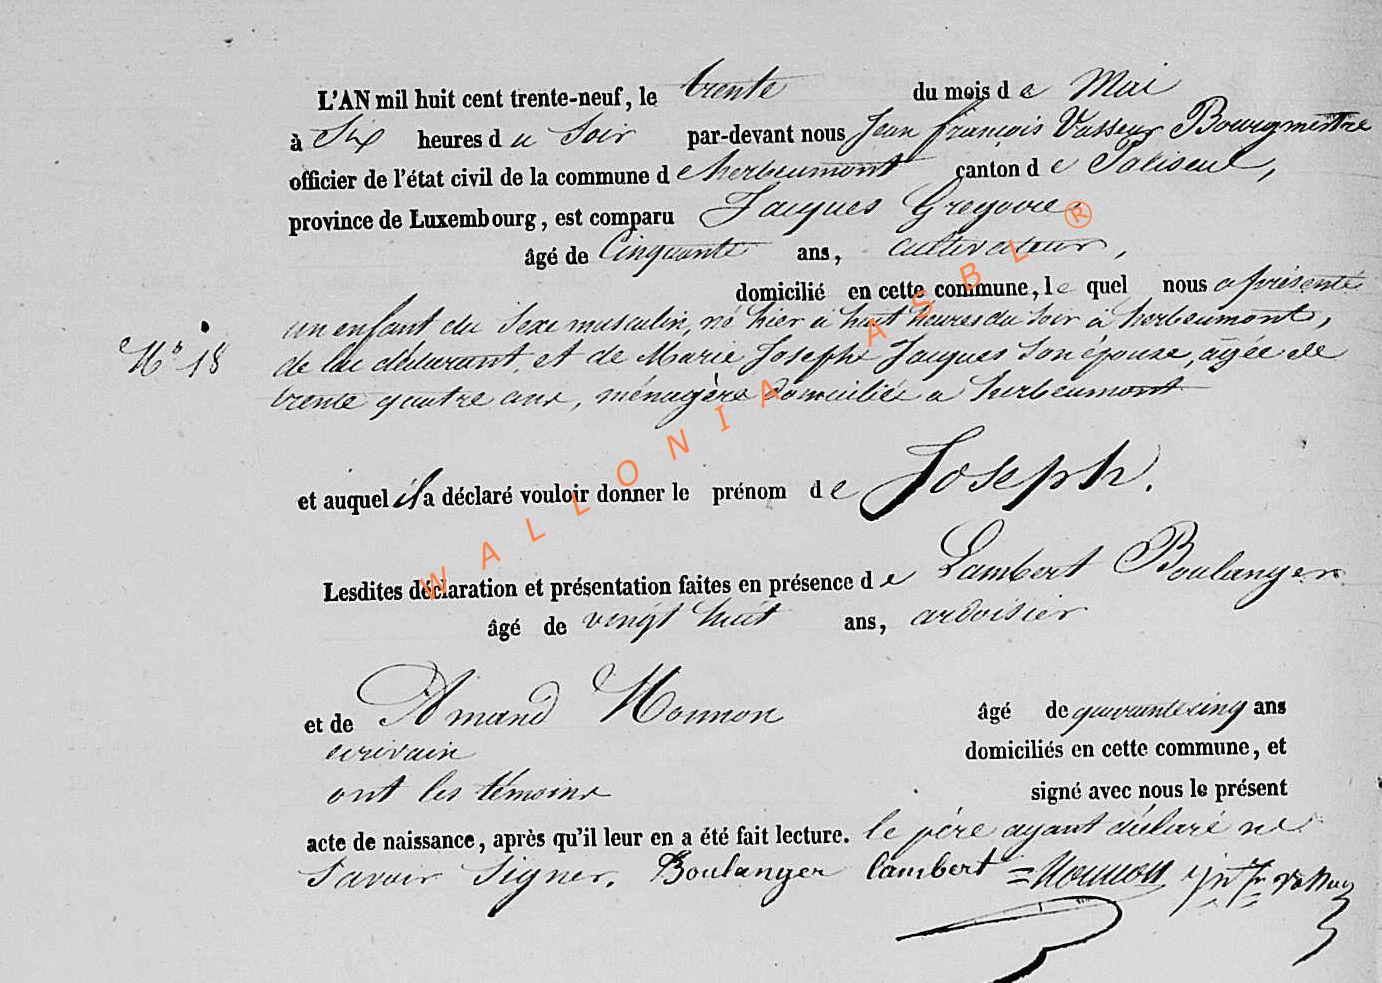 L'AN mil huit cent trente-neuf, le trente du mois de Mai
à Six heures du Soir par-devant nous Jean françois Vasseur Bourgmestre
officier de l'état civil de la commune de herbeumont canton de Paliseul,
province de Luxembourg, est comparu Jacques Gregoire
âgé de Cinquante ans, cultivateur,
domicilié en cette commune, le quel nous a présenté
un enfant du Sexe masculin, né hier à huit heures du soir à herbeumont,
N° 18 de lui déclarant, et de Marie Joseph Jacques Son épouse, âgée de
trente quatre ans, ménagère domiciliée a herbeumont
et auquel il a déclaré vouloir donner le prénom de Joseph.
Lesdites déclaration et présentation faites en présence de Lambert Boulanger
âgé de vingt huit ans, ardoisier
et de Amand Monnon âgé de quarante cinq ans
ecrivain domiciliés en cette commune, et
ont les témoins signé avec nous le présent
acte de naissance, après qu'il leur en a été fait lecture. le père ayant déclaré ne
Savoir Signer. Boulanger lambert = Monnon
WALLONIA ASBL ®